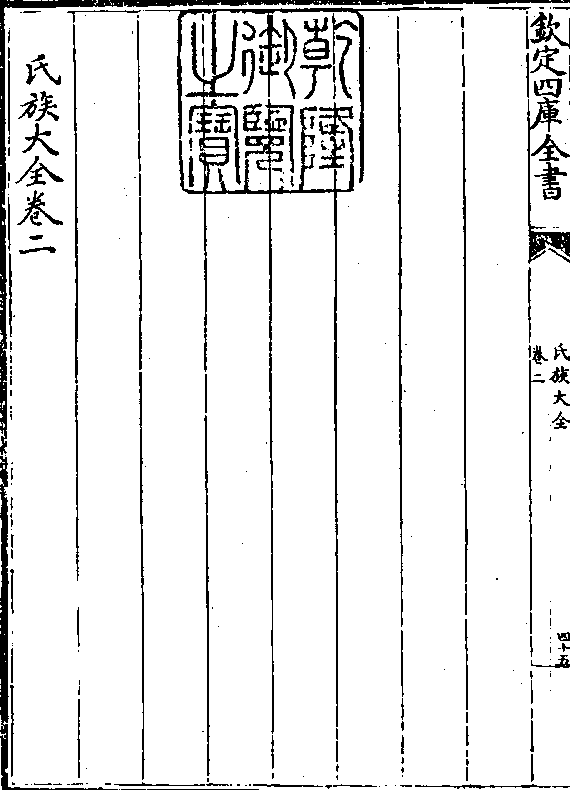 欽定四庫全書
氏族大全
卷二
四十五
乾隆
御覽
之寶
氏族大全卷二